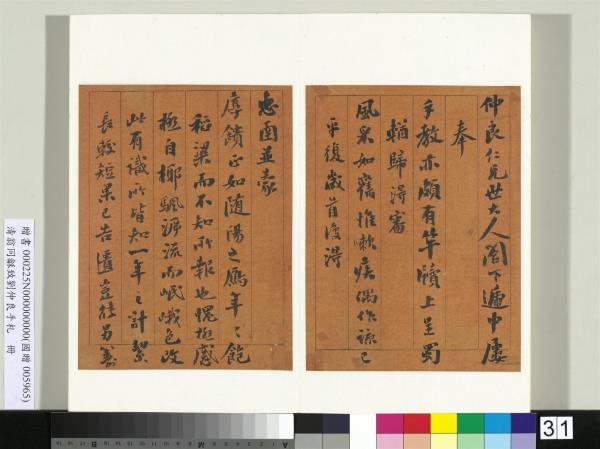 仲良仁兄世大人閣下遞中屢
奉
手教亦頗有竿牘上呈蜀
輶歸得審
風采如舊惟嗽疾偶作諒已
平復歲首復得
惠函並蒙
厚饋正如隨陽之鴈年々飽
稻粱而不知所報也愧極感
極自
流而岷峨色改
此有識所皆知一年之計絜
長較短果已告匱豈待另籌
贈書 000225N000000000(國贈 005965)
清翁同龢致劉仲良手札 冊
31